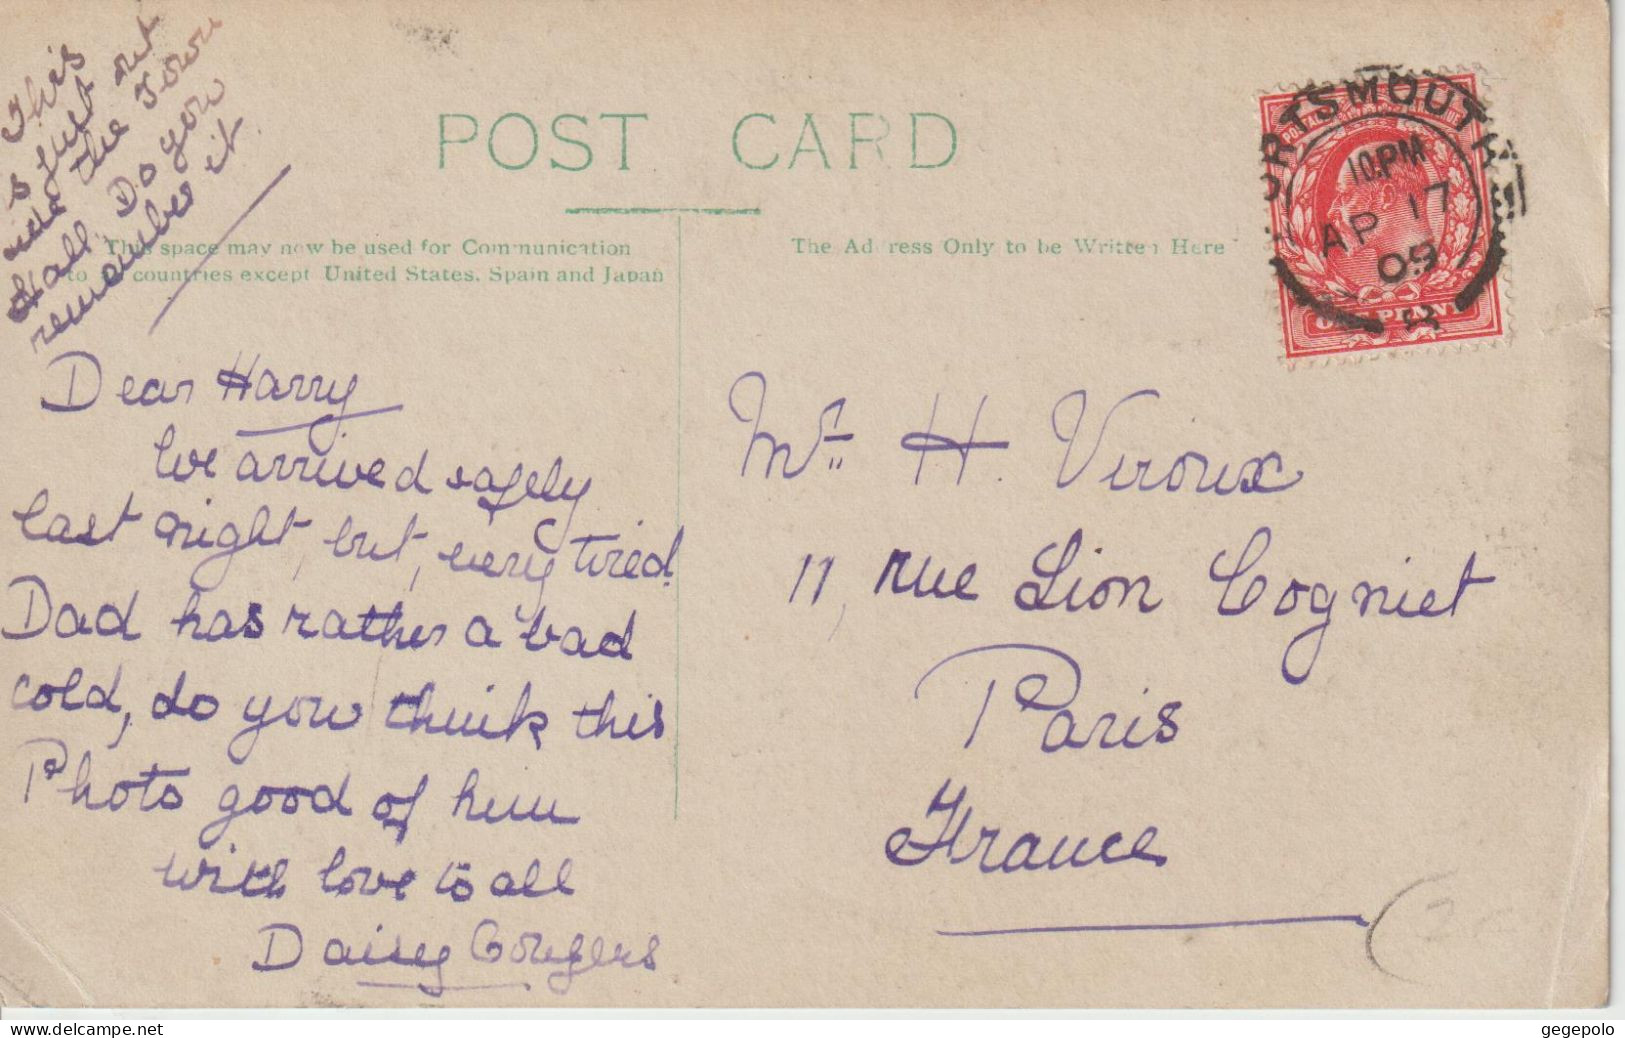 This
is just out
side the Town
Hall. Do you
remember it
POST CARD
This space may now be used for Communication
to countries except United States, Spain and Japan
The Address Only to be Written Here
PORTSMOUTH
10.PM
AP 17
09
ONE PENNY
Dear Harry
We arrived safely
last night, but, very tired.
Dad has rather a bad
cold, do you think this
Photo good of him
with love to all
Daisy
Mr. H. Viroux
11, rue Lion Cogniet
Paris
France
delcampe.net
gegepolo